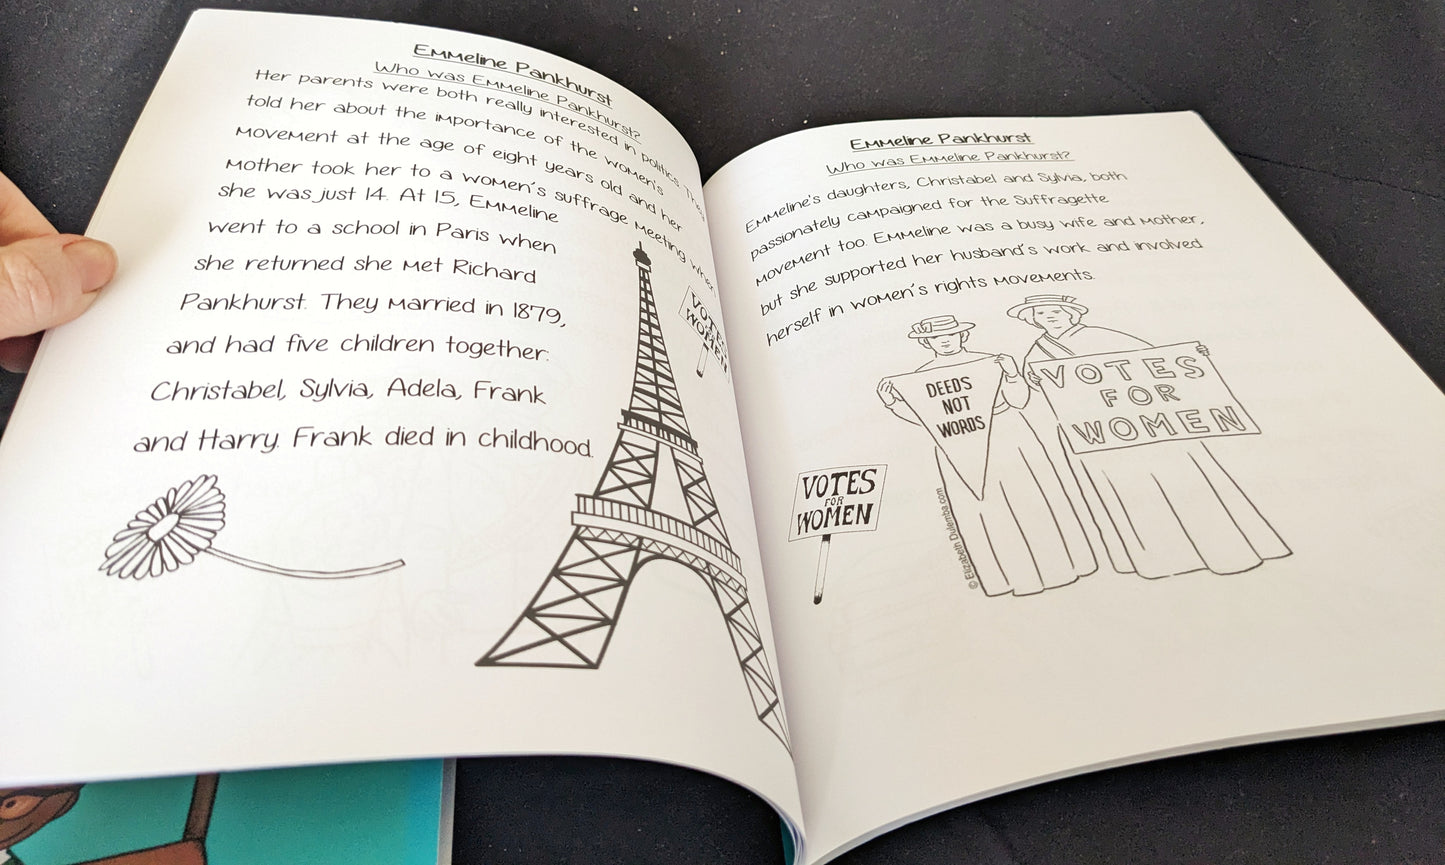 Emmeline Pankhurst
Who was Emmeline Pankhurst?
Her parents were both really interested in politics. They
told her about the importance of the women's
movement at the age of eight years old and her
mother took her to a women's suffrage meeting when
she was just 14. At 15, Emmeline
went to a school in Paris when
she returned she met Richard
Pankhurst. They married in 1879,
and had five children together:
Christabel, Sylvia, Adela, Frank
and Harry. Frank died in childhood.
VOTES
WOMEN
Emmeline Pankhurst
Who was Emmeline Pankhurst?
Emmeline's daughters, Christabel and Sylvia, both
passionately campaigned for the Suffragette
movement too. Emmeline was a busy wife and mother,
but she supported her husband's work and involved
herself in women's rights movements.
DEEDS
NOT
WORDS
VOTES
FOR
WOMEN
VOTES
FOR
WOMEN
© Elizabeth Dulemba.com